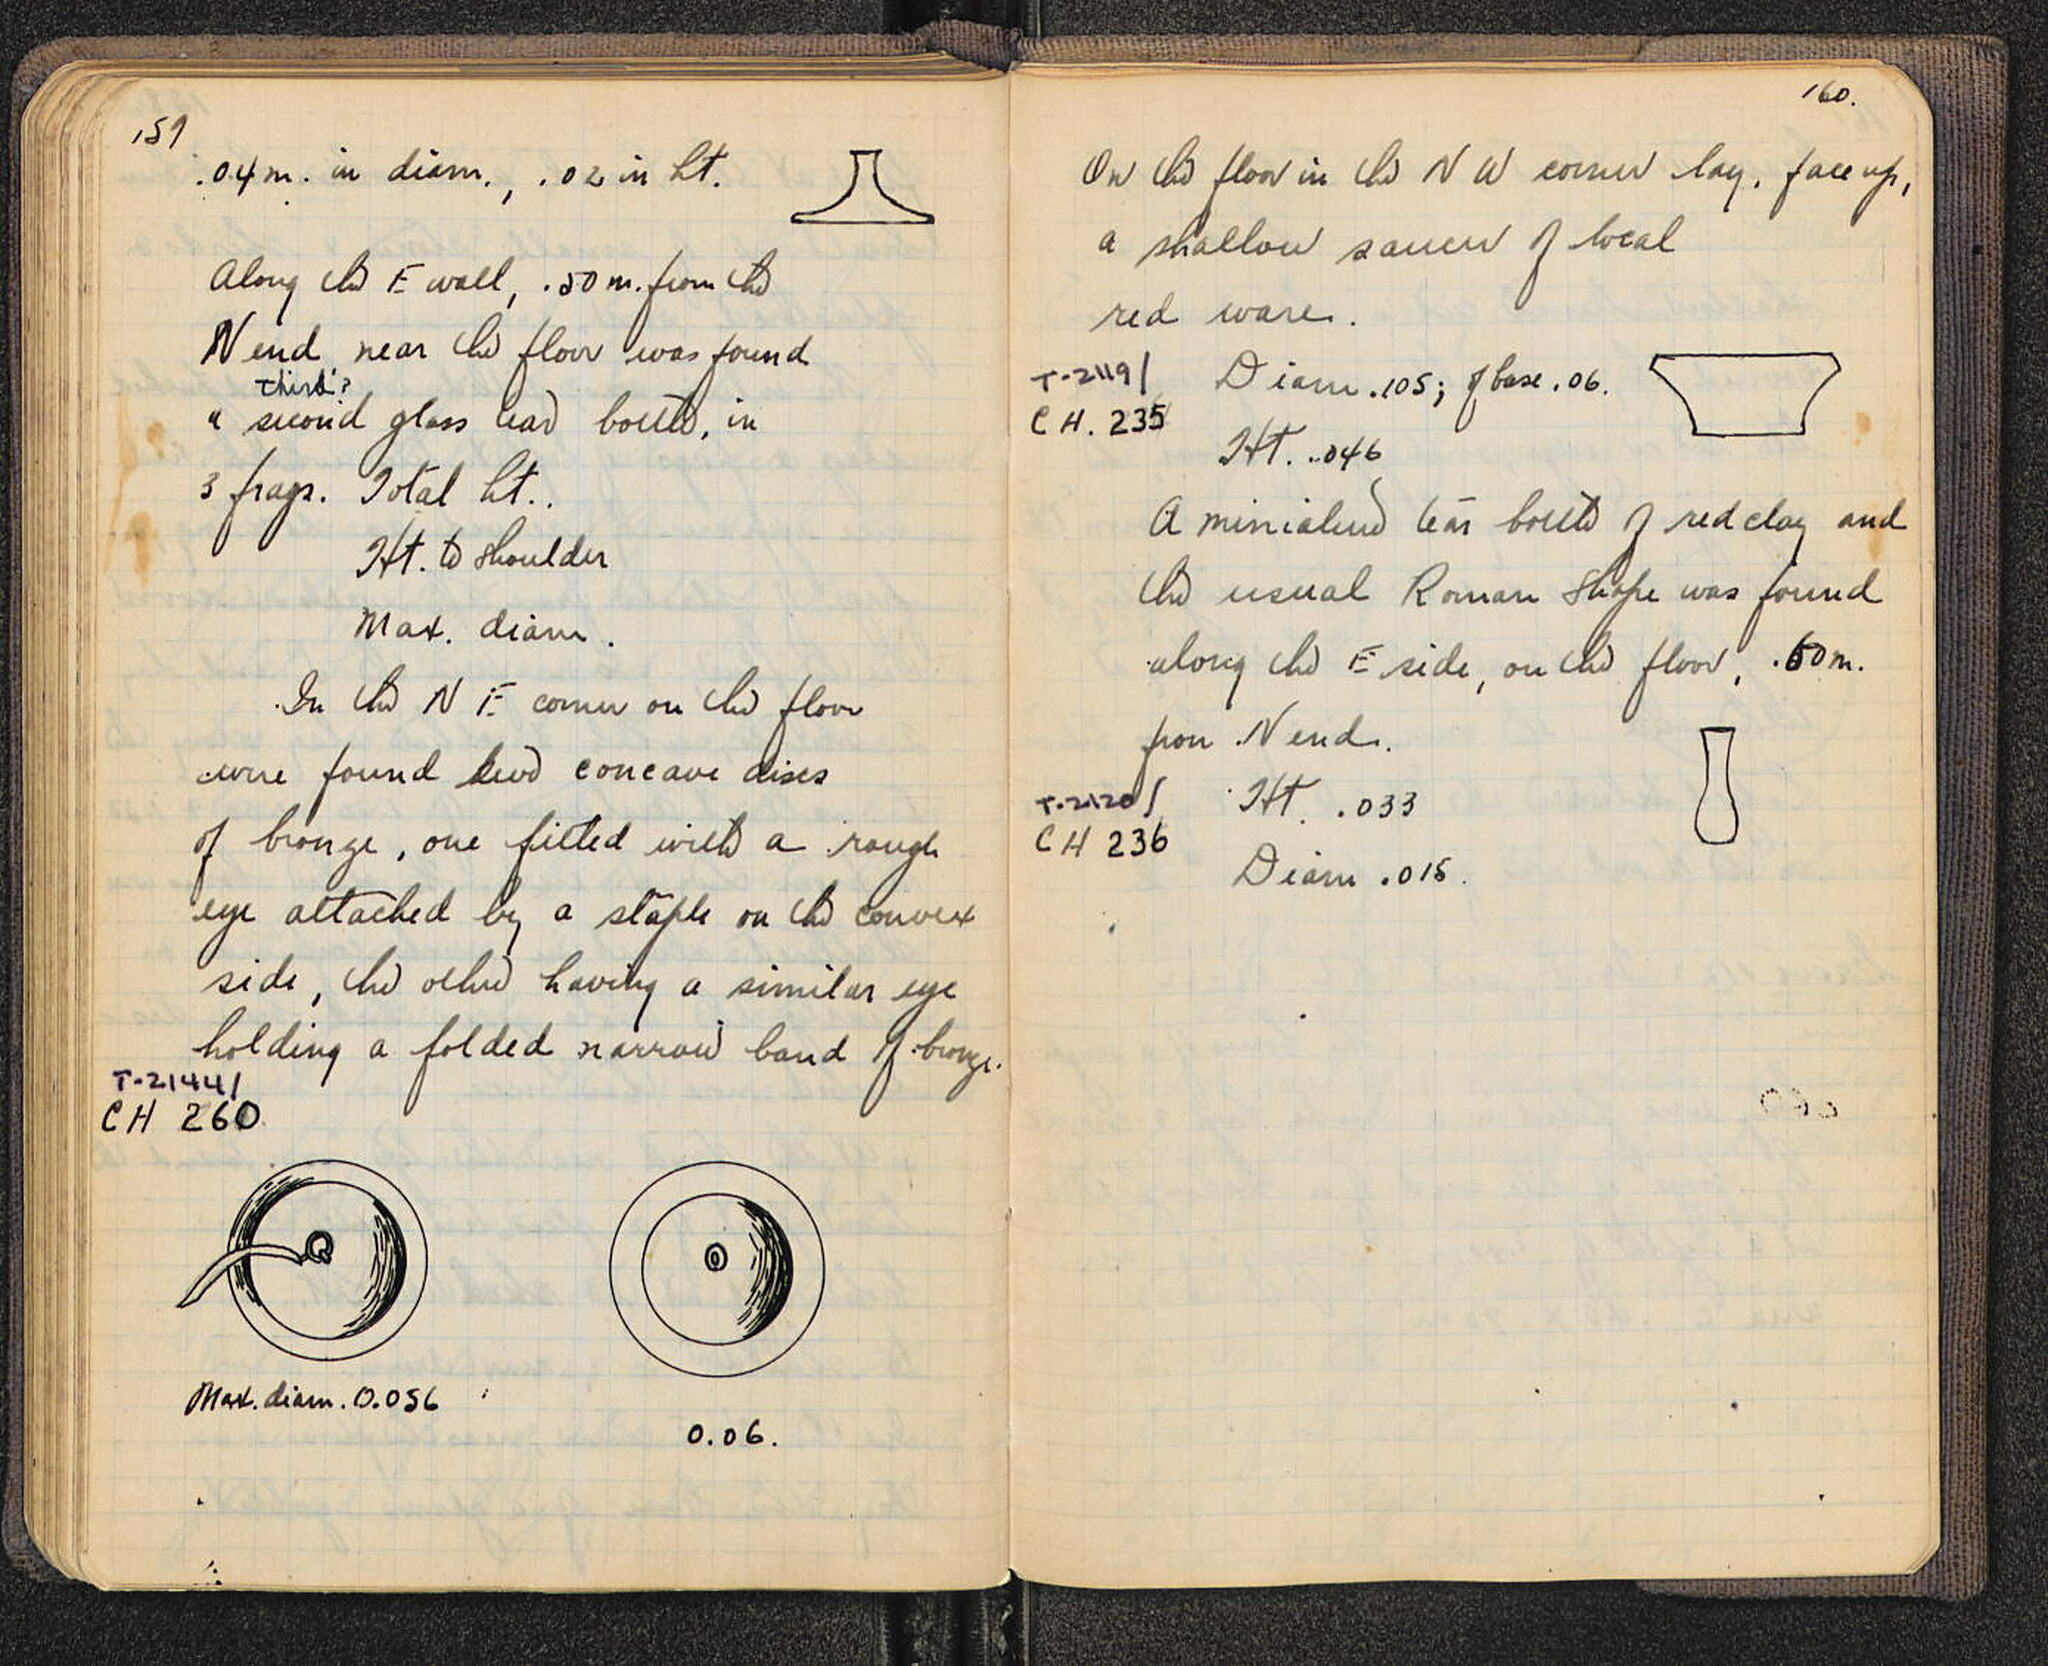 159
.04 m. in diam., .02 in ht.
Along the E wall, .50 m. from the
N end near the floor was found
third?
a second glass tear bottle, in
3 frags. Total ht..
Ht. to shoulder
Max. diam.
In the N E corner on the floor
were found two concave discs
of bronze, one fitted with a rough
eye attached by a staple on the convex
side, the other having a similar eye
holding a folded narrow band of bronze.
T-2144/
CH 260
Max. diam. 0.056
0.06.
160.
On the floor in the N W corner lay, face up,
a shallow saucer of local
red ware.
T-2119/
CH. 235
Diam .105; of base .06.
Ht. .046
A miniature tear bottle of red clay and
the usual Roman shape was found
along the E side, on the floor, .60 m.
from N end.
T-2120/
CH 236
Ht. .033
Diam .015.